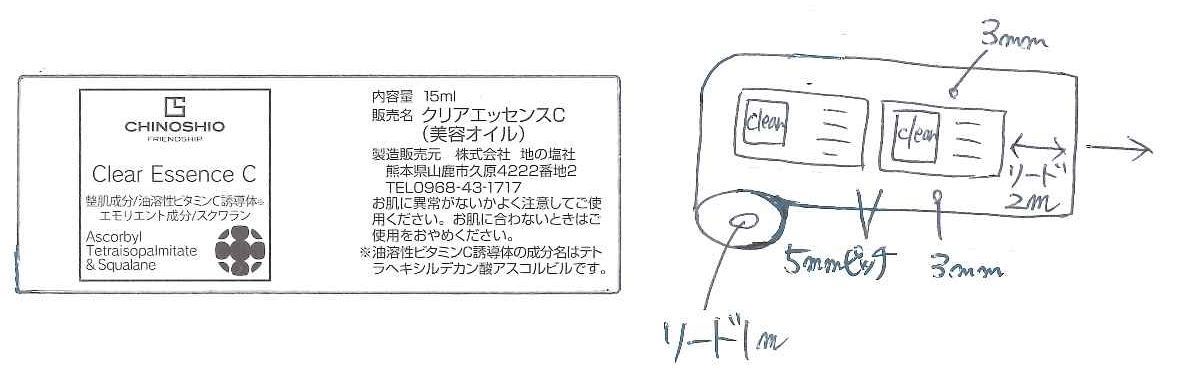 CHINOSHIO
FRIENDSHIP
Clear Essence C
整肌成分/油溶性ビタミンC誘導体※
エモリエント成分/スクワラン
Ascorbyl
Tetraisopalmitate
& Squalane
内容量 15ml
販売名 クリアエッセンスC
(美容オイル)
製造販売元 株式会社 地の塩社
熊本県山鹿市久原4222番地2
TEL0968-43-1717
お肌に異常がないかよく注意してご使
用ください。お肌に合わないときはご
使用をおやめください。
※油溶性ビタミンC誘導体の成分名はテト
ラヘキシルデカン酸アスコルビルです。
3mm
Clean
Clean
リード
2m
5mmピッチ
3mm
リード1m